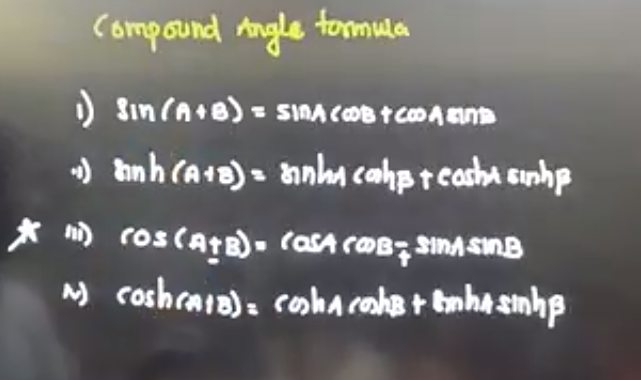 Compound Angle formula
i) sin(A+B) = sinA cosB + cosA sinB
ii) sinh(A+B) = sinhA coshB + coshA sinhB
★ iii) cos(A±B) = cosA cosB ∓ sinA sinB
iv) cosh(A±B) = coshA coshB + sinhA sinhB